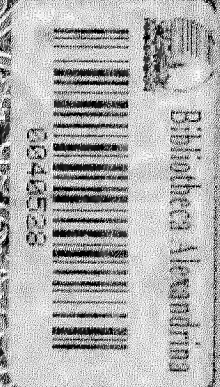 Bibliotheca Alexandrina
0040528